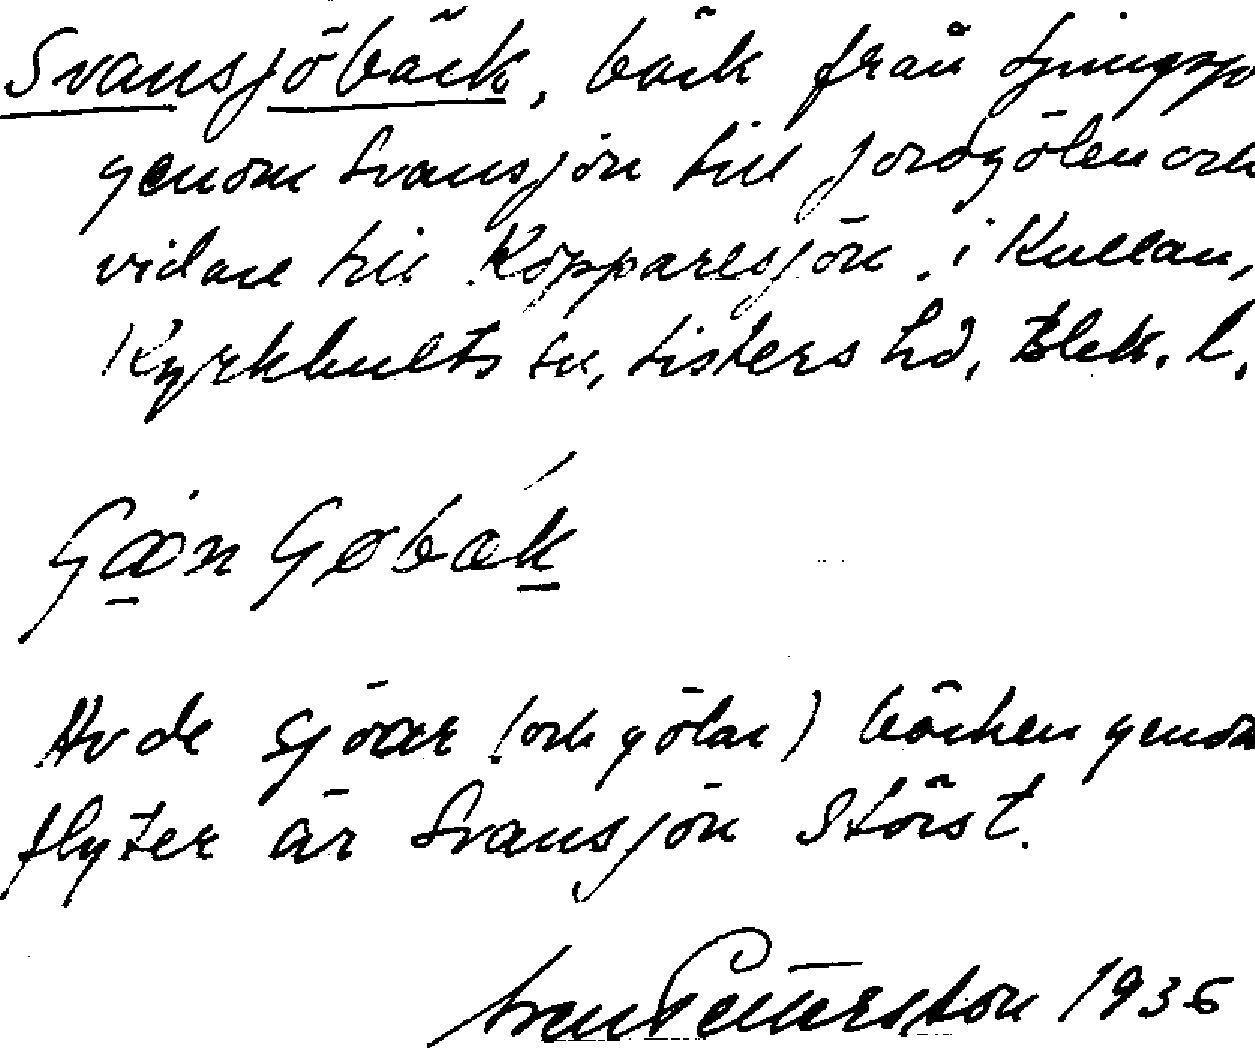 Svansjöbäck, bäck från Ljungsjö
genom Svansjön till Jordgölen och
vidare till Kopparesjön i Kullan,
Kyrkhults sn, Listers hd, Blek. l.
Av de sjöar (och gölar) bäcken genom
flyter är Svansjön störst.
Sven Pettersson 1936